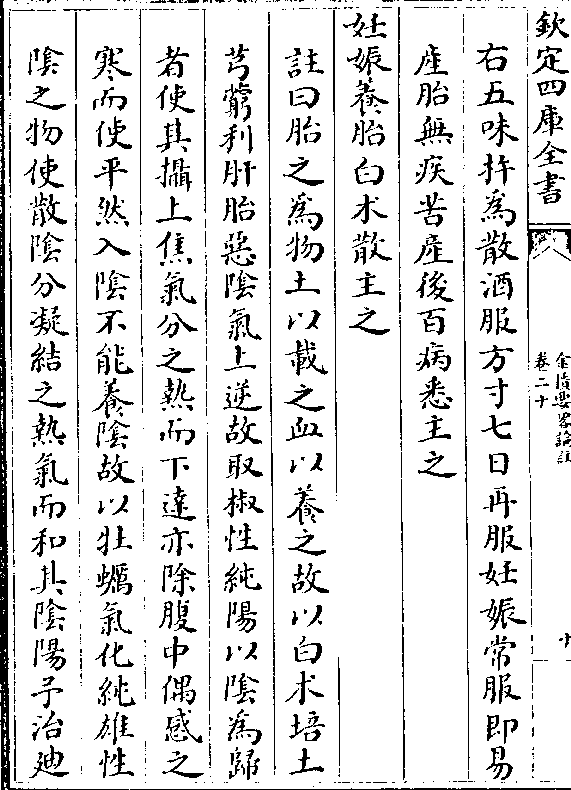 欽定四庫全書
金匱要畧論註
卷二十
十
右五味杵為散酒服方寸七日再服妊娠常服即易
産胎無疾苦産後百病悉主之
妊娠養胎白术散主之
註曰胎之為物土以載之血以養之故以白术培土
芎藭利肝胎惡陰氣上逆故取椒性純陽以陰為歸
者使其攝上焦氣分之熱而下達亦除腹中偶感之
寒而使平然入陰不能養陰故以牡蠣氣化純雄性
陰之物使散陰分凝結之熱氣而和其陰陽予治廸